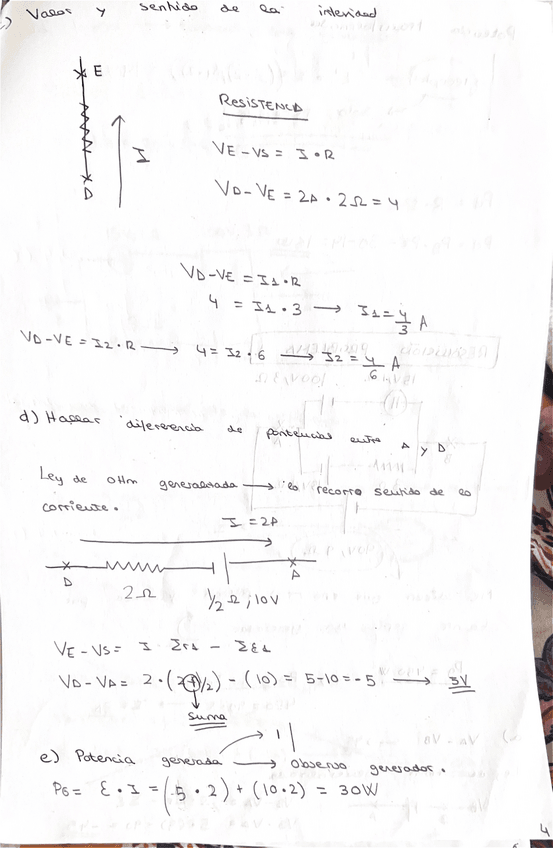 c) Valor y sentido de la intensidad
E
I
D
RESISTENCIA
VE - VS = I • R
VD - VE = 2A • 2Ω = 4
VD - VE = I1 • R
4 = I1 • 3 → I1 = 4/3 A
VD - VE = I2 • R → 4 = I2 • 6 → I2 = 4/6 A
d) Hallar diferencia de potencial entre A y D
Ley de OHm generalizada → lo recorro sentido de la
corriente.
I = 2A
D A
2Ω 1/2 Ω, 10V
VE - VS = I • Σr1 - Σε1
VD - VA = 2 • (2+1/2) - (10) = 5 - 10 = -5 → 5V
suma
e) Potencia generada → Observo generadores.
PG = ε • I = (5 • 2) + (10 • 2) = 30W
4